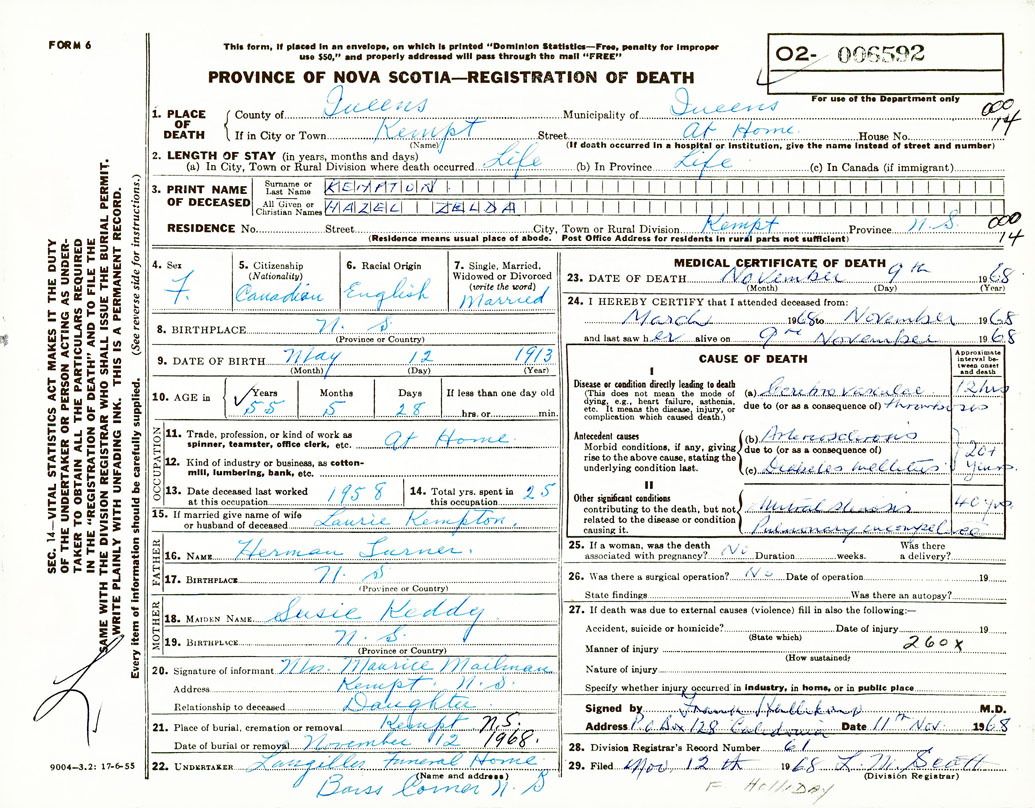 FORM 6
This form, if placed in an envelope, on which is printed "Dominion Statistics—Free, penalty for improper
use $50," and properly addressed will pass through the mail "FREE"
O2- 006592
PROVINCE OF NOVA SCOTIA—REGISTRATION OF DEATH
For use of the Department only
000
14
1. PLACE OF DEATH
County of Queens Municipality of Queens
If in City or Town Kempt Street At Home House No.
(Name) (If death occurred in a hospital or institution, give the name instead of street and number)
2. LENGTH OF STAY (in years, months and days)
(a) In City, Town or Rural Division where death occurred Life (b) In Province Life (c) In Canada (if immigrant)
3. PRINT NAME OF DECEASED
Surname or Last Name KEMPTON
All Given or Christian Names HAZEL ZELDA
RESIDENCE No. Street City, Town or Rural Division Kempt Province N.S.
(Residence means usual place of abode. Post Office Address for residents in rural parts not sufficient)
000
14
4. Sex
F.
5. Citizenship
(Nationality)
Canadian
6. Racial Origin
English
7. Single, Married, Widowed or Divorced
(write the word)
Married
8. BIRTHPLACE N. S.
(Province or Country)
9. DATE OF BIRTH May 12 1913
(Month) (Day) (Year)
10. AGE in Years Months Days If less than one day old
55 5 28 hrs. or min.
OCCUPATION
11. Trade, profession, or kind of work as
spinner, teamster, office clerk, etc. At Home
12. Kind of industry or business, as cotton-
mill, lumbering, bank, etc.
13. Date deceased last worked
at this occupation 1958
14. Total yrs. spent in
this occupation 25
15. If married give name of wife
or husband of deceased Laurie Kempton.
FATHER
16. NAME Herman Turner.
17. BIRTHPLACE N. S
(Province or Country)
MOTHER
18. MAIDEN NAME Susie Keddy
19. BIRTHPLACE N. S.
(Province or Country)
20. Signature of informant Mrs. Maurice Mailman
Address Kempt. N. S.
Relationship to deceased Daughter
21. Place of burial, cremation or removal Kempt N.S.
Date of burial or removal November 12 1968.
22. UNDERTAKER Langilles Funeral Home
(Name and address)
Barss Corner N. S
MEDICAL CERTIFICATE OF DEATH
23. DATE OF DEATH November 9th 1968
(Month) (Day) (Year)
24. I HEREBY CERTIFY that I attended deceased from:
March 1968 to November 1968
and last saw her alive on 9th November 1968
CAUSE OF DEATH
Approximate interval between onset and death
I
Disease or condition directly leading to death
(This does not mean the mode of
dying, e.g., heart failure, asthenia,
etc. It means the disease, injury, or
complication which caused death.)
(a) Cerebrovascular 12 hrs
due to (or as a consequence of) thrombosis
Antecedent causes
Morbid conditions, if any, giving
rise to the above cause, stating the
underlying condition last.
(b) Arteriosclerosis
due to (or as a consequence of)
(c) Diabetes mellitus
20+
years.
II
Other significant conditions
contributing to the death, but not
related to the disease or condition
causing it.
Mitral stenosis 40 yrs
Pulmonary
25. If a woman, was the death
associated with pregnancy? No Duration weeks. Was there
a delivery?
26. Was there a surgical operation? No Date of operation 19
State findings Was there an autopsy?
27. If death was due to external causes (violence) fill in also the following:—
Accident, suicide or homicide? Date of injury 19
(State which)
Manner of injury 260X
(How sustained)
Nature of injury
Specify whether injury occurred in industry, in home, or in public place
Signed by M.D.
Address P.O. Box 128 Caledonia Date 11th Nov. 1968
28. Division Registrar's Record Number 61
29. Filed Nov. 12th 1968 L. M. Scott
(Division Registrar)
F. HOLLIDAY
SEC. 14—VITAL STATISTICS ACT MAKES IT THE DUTY
OF THE UNDERTAKER OR PERSON ACTING AS UNDER-
TAKER TO OBTAIN ALL THE PARTICULARS REQUIRED
IN THE "REGISTRATION OF DEATH" AND TO FILE THE
SAME WITH THE DIVISION REGISTRAR WHO SHALL ISSUE THE BURIAL PERMIT.
WRITE PLAINLY WITH UNFADING INK. THIS IS A PERMANENT RECORD.
Every item of information should be carefully supplied. (See reverse side for instructions.)
9004-3.2: 17-6-55